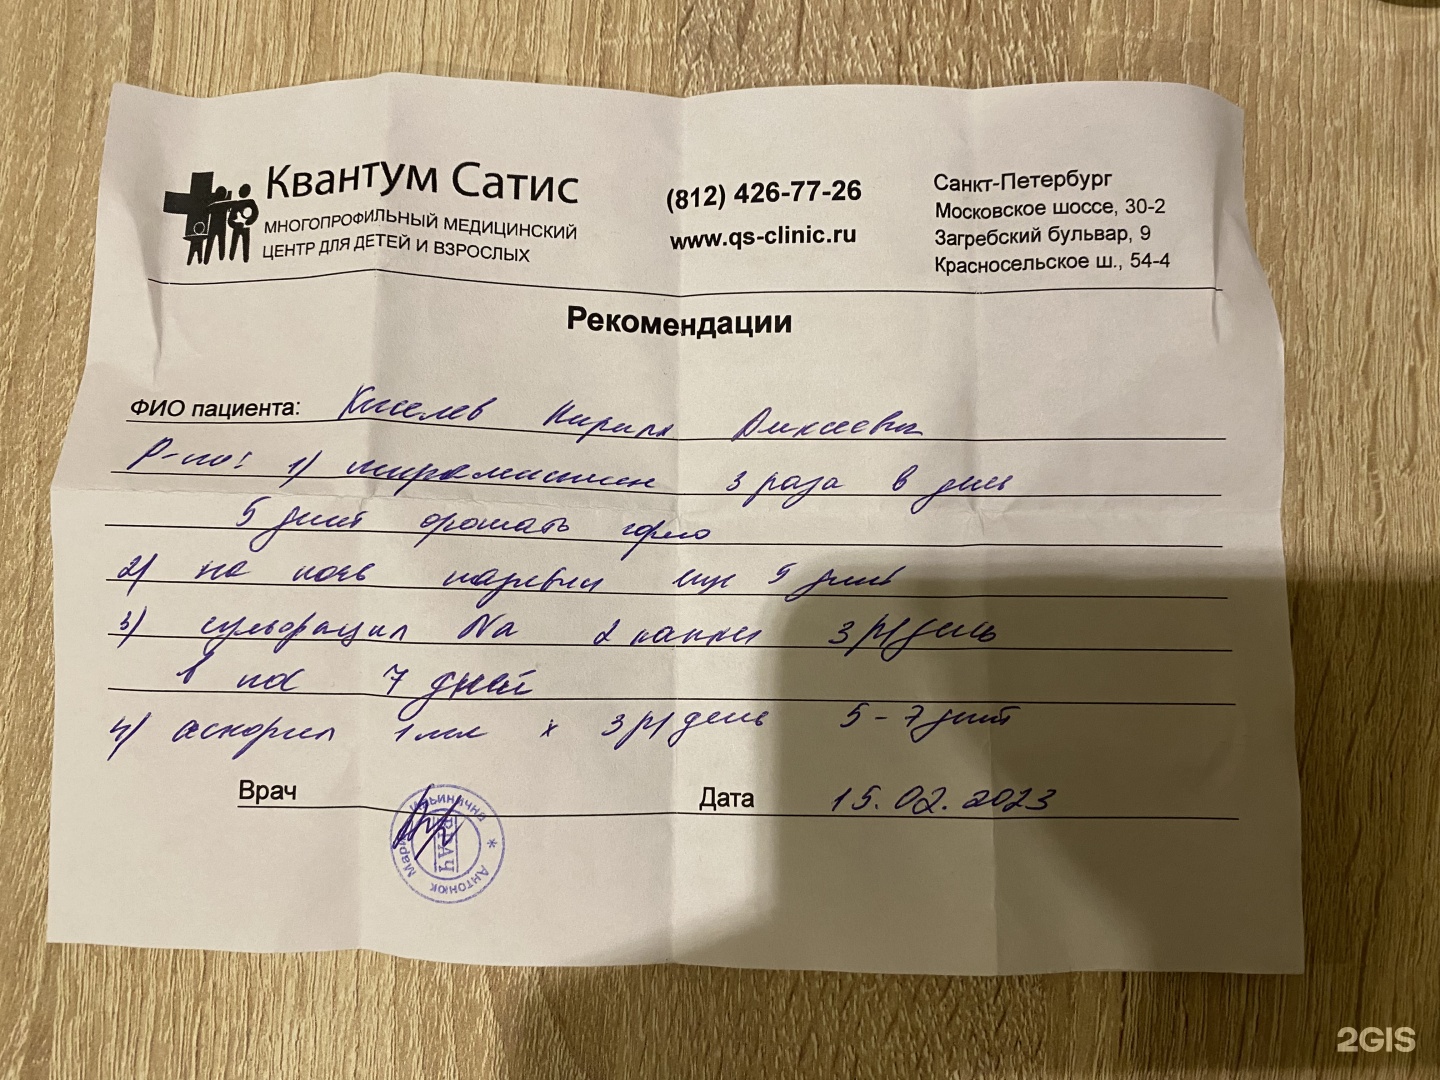 Квантум Сатис
МНОГОПРОФИЛЬНЫЙ МЕДИЦИНСКИЙ
ЦЕНТР ДЛЯ ДЕТЕЙ И ВЗРОСЛЫХ
(812) 426-77-26
www.qs-clinic.ru
Санкт-Петербург
Московское шоссе, 30-2
Загребский бульвар, 9
Красносельское ш., 54-4
Рекомендации
ФИО пациента: Киселев Кирилл Алексеевич
Р-но: 1) мирамистин 3 раза в день
5 дней орошать горло
2) на ночь називин еще 5 дней
3) сульфацил Na 2 капли 3 р/день
в нос 7 дней
4) аскорил 1 мл х 3 р/день 5-7 дней
Врач
Дата 15.02.2023
Антонюк Мария Ильинична
ВРАЧ
2GIS